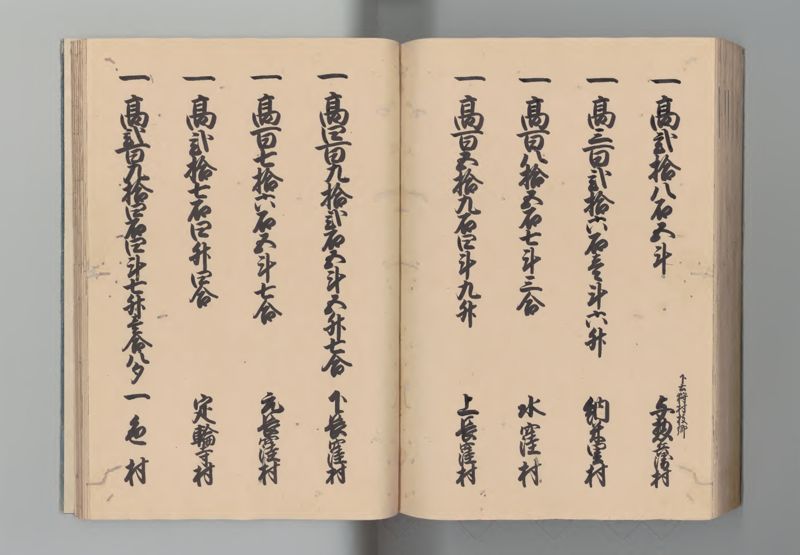 一高弐拾八石五斗
下土狩村枝郷
与惣兵衛村
一高三百弐拾六石壱斗六升
納米里村
一高百八拾五石七斗三合
水窪村
一高百五拾九石四斗九升
上長窪村
一高四百九拾弐石五斗五升七合
下長窪村
一高百七拾六石五斗七合
元長窪村
一高弐拾七石四升四合
定輪寺村
一高弐百九拾四石四斗七升壱合八夕
一色村